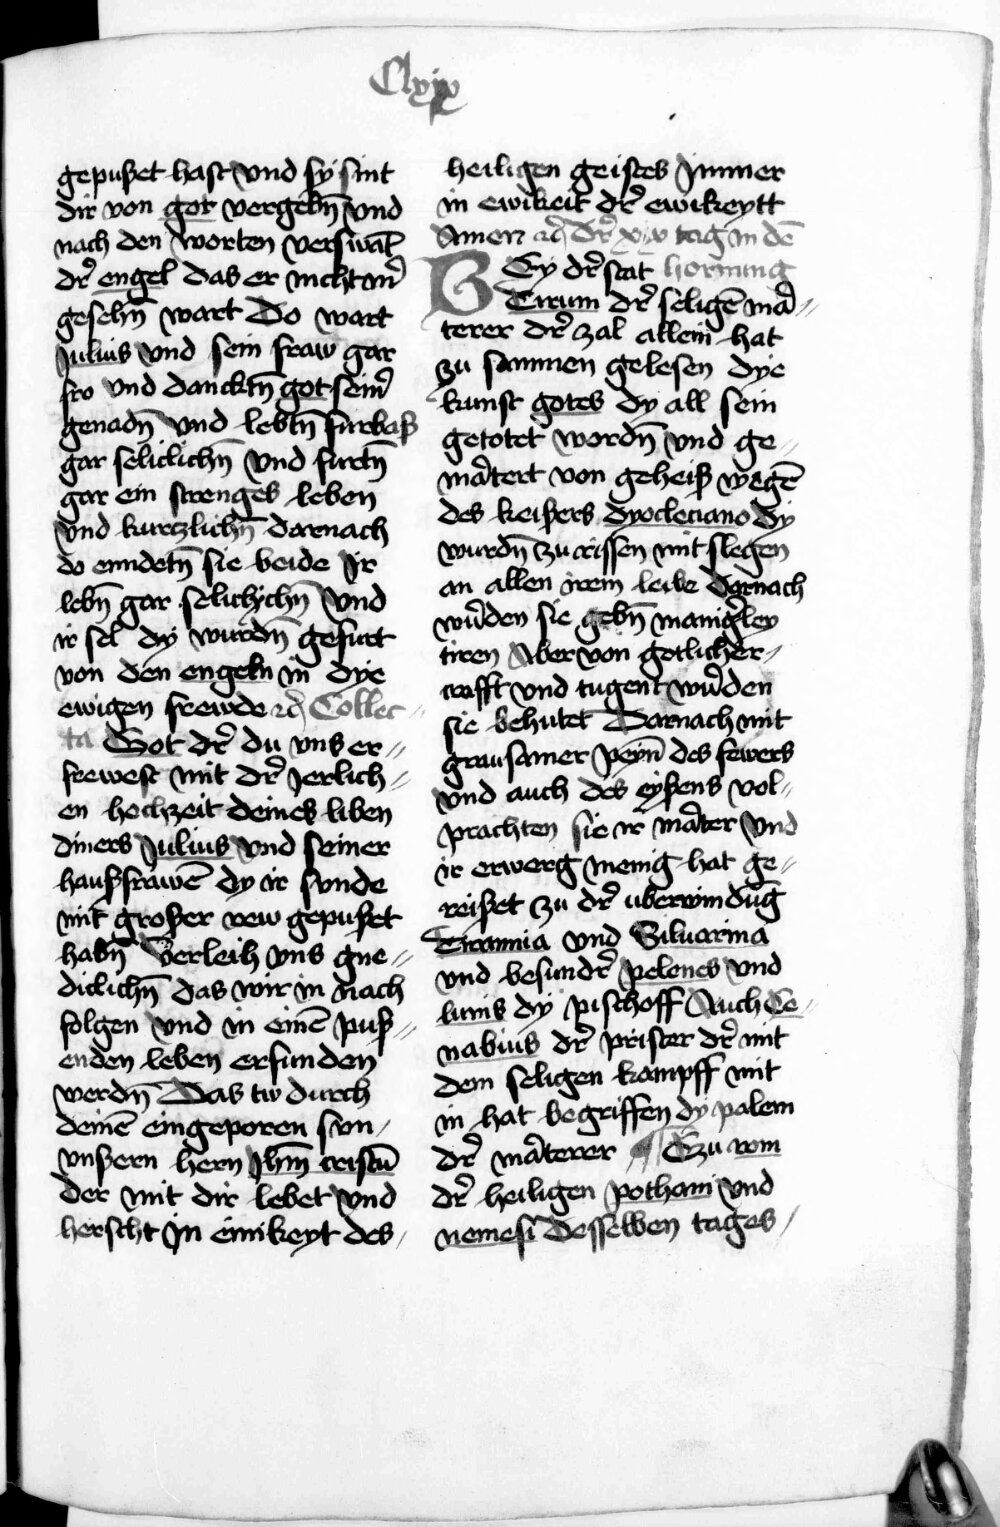 Clxix
gepußet hast vnd sy sint
dir von got vergebn̄ vnd
nach den worten verswāt
dr̄ engel das er nicht mr̄
gesehn̄ wart Do wart
Julius vnd sein fraw gar
fro vnd dancktn̄ got seinr̄
genadn̄ vnd lebtn̄ furbaß
gar seliclichn̄ vnd furtn̄
gar ein strenges leben
vnd kurczlichn̄ darnach
do enndetn̄ sie beide Jr
lebn̄ gar selichichn̄ vnd
ir sel dy wurdn̄ gefurt
von den engeln in dye
ewigen frewde ꝛc̄ Collec
ta Got dr̄ du vns er⸗
frewest mit dr̄ Jerlich⸗
en hochzeit deines liben
diners Julius vnd seiner
haußfrawē dy ir sunde
mit großer rew gepußet
habn̄ Verleih vns gne⸗
diclichn̄ das wir in nach
folgen vnd in einē puß⸗
enden leben erfunden
werdn̄ Das tw durch
deinē eingeporen sun
vnßern hern Jhm̄ cristū
der mit dir lebet vnd
herscht in einikeyt des
heiligen geistes Jmmer
in ewikeit dr̄ ewikeytt
Amen ꝛc̄ Dr̄ xx tag in dē
BEy dr̄ stat hornung
Tirum dr̄ seligē mar̄⸗
terer dr̄ zal allein hat
zu sammen gelesen dye
kunst gotes dy all sein
getotet wordn̄ vnd ge⸗
mar̄tert von geheiß wegē
des keißers dyocleciano dy
wurdn̄ zu rissen mit slegen
an allen irem leibe Darnach
wur̄den sie gebn̄ manigr̄ley
tiren Aber von gotlicher
crafft vnd tugent wur̄den
sie behutet Darnach mit
grausamer peyn̄ des fewers
vnd auch des eyßens vol⸗
prachten sie ir mar̄ter vnd
ir erwerg menig hat ge⸗
reißet zu dr̄ uberwindūg
Tirannia vnd Siluarina
vnd besundr̄ pelenes vnd
lunis dy pischoff Auch Ce⸗
nabius dr̄ prister dr̄ mit
dem seligen kampff mit
in hat begriffen dy palem
dr̄ mar̄terer ¶ Czu rom
dr̄ heiligen pothami vnd
nemesi desselben tages